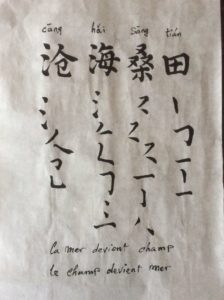 cāng hǎi sāng tián
沧 海 桑 田
la mer devient champ
le champ devient mer